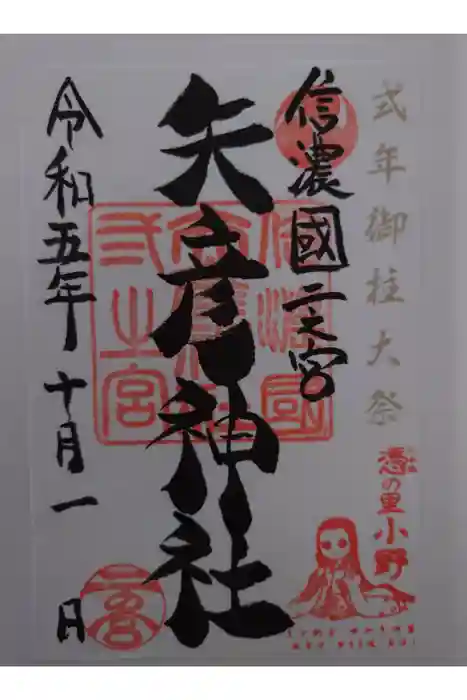 式年御柱大祭
信濃國二之宮
矢彦神社
令和五年十月一日
憑の里
小野
二宮